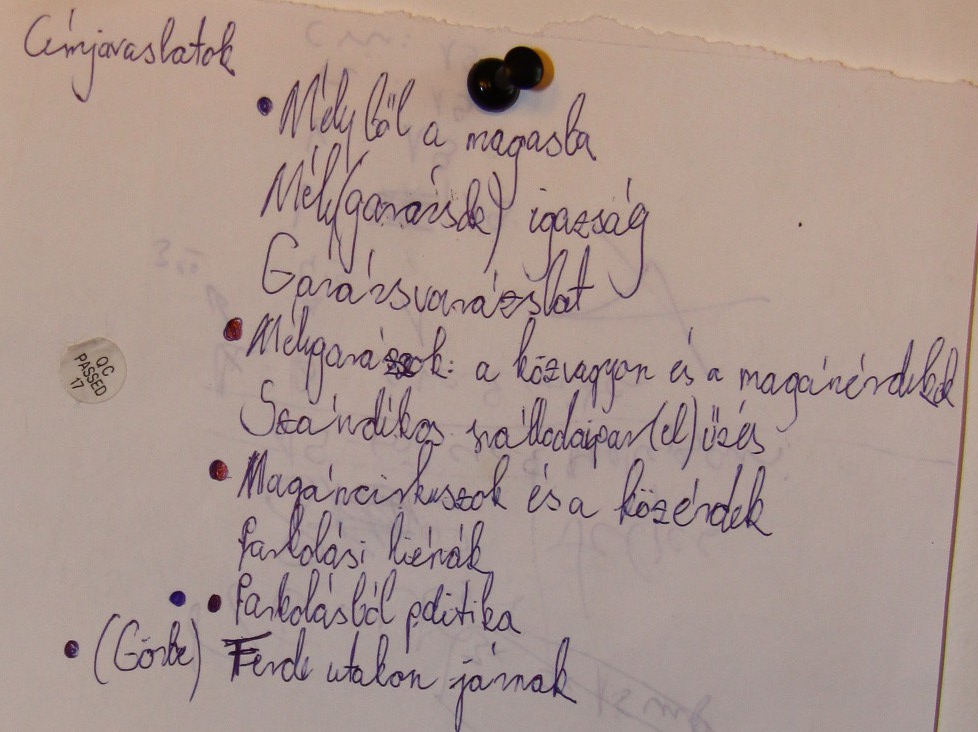 Címjavaslatok
• Mélyből a magasba
Mély(garázsok) igazság
Garázsvarázslat
• Mélygarázsok: a közvagyon és a magánérdekek
Szándékos szállodaipar(el)űzés
• Magáncirkuszok és a közérdek
Parkolási hiénák
• • Parkolásból politika
• (Görbe) Ferde utakon járnak
QC
PASSED
17